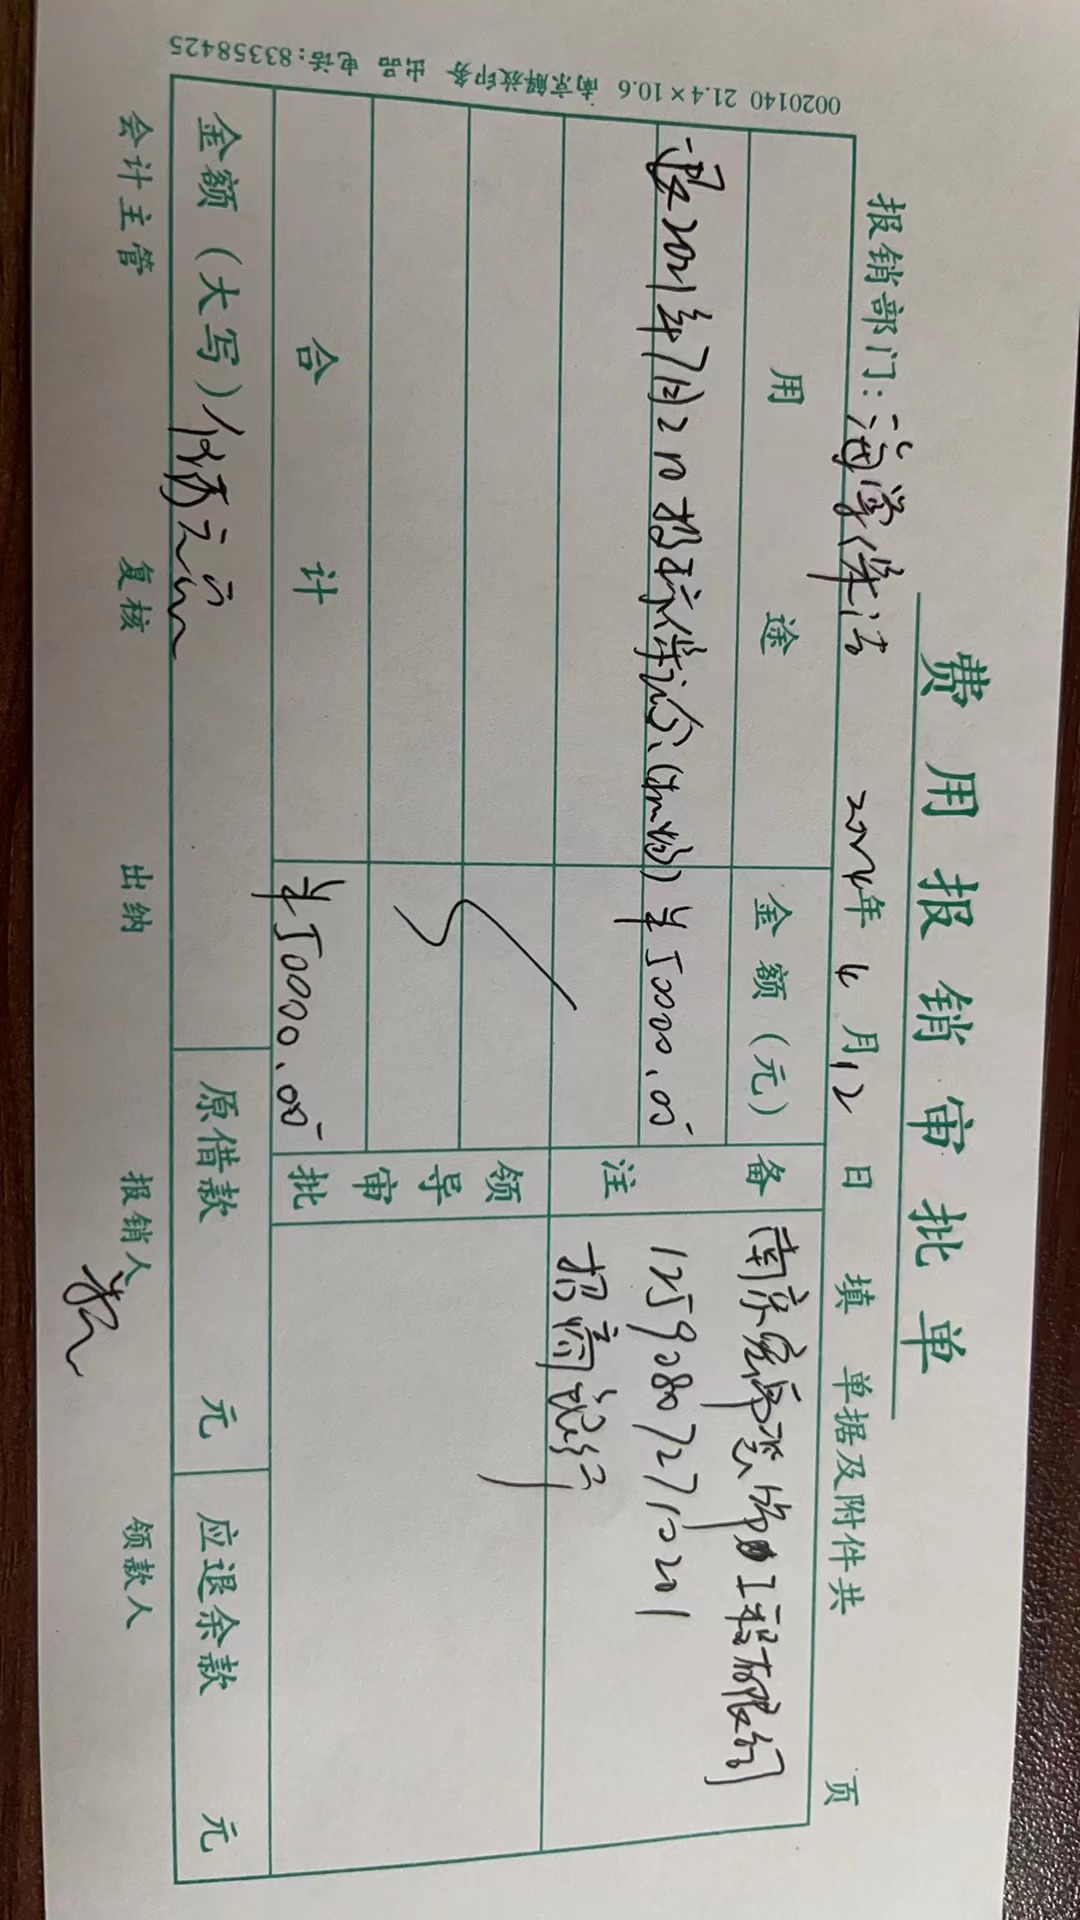 费用报销审批单
报销部门: 2024年 4 月 12 日 填 单据及附件共 页
用途 金额(元) 备注
退2021年7月2日招标保证金 ¥50000.00
南京 装饰工程有限公司
125908072710201
招商银行
领导审批
合计 ¥50000.00
金额(大写) 伍万元 原借款 元 应退余款 元
会计主管 复核 出纳 报销人 领款人
0020140 21.4×10.6 南京解放印务 出品 电话:83358425